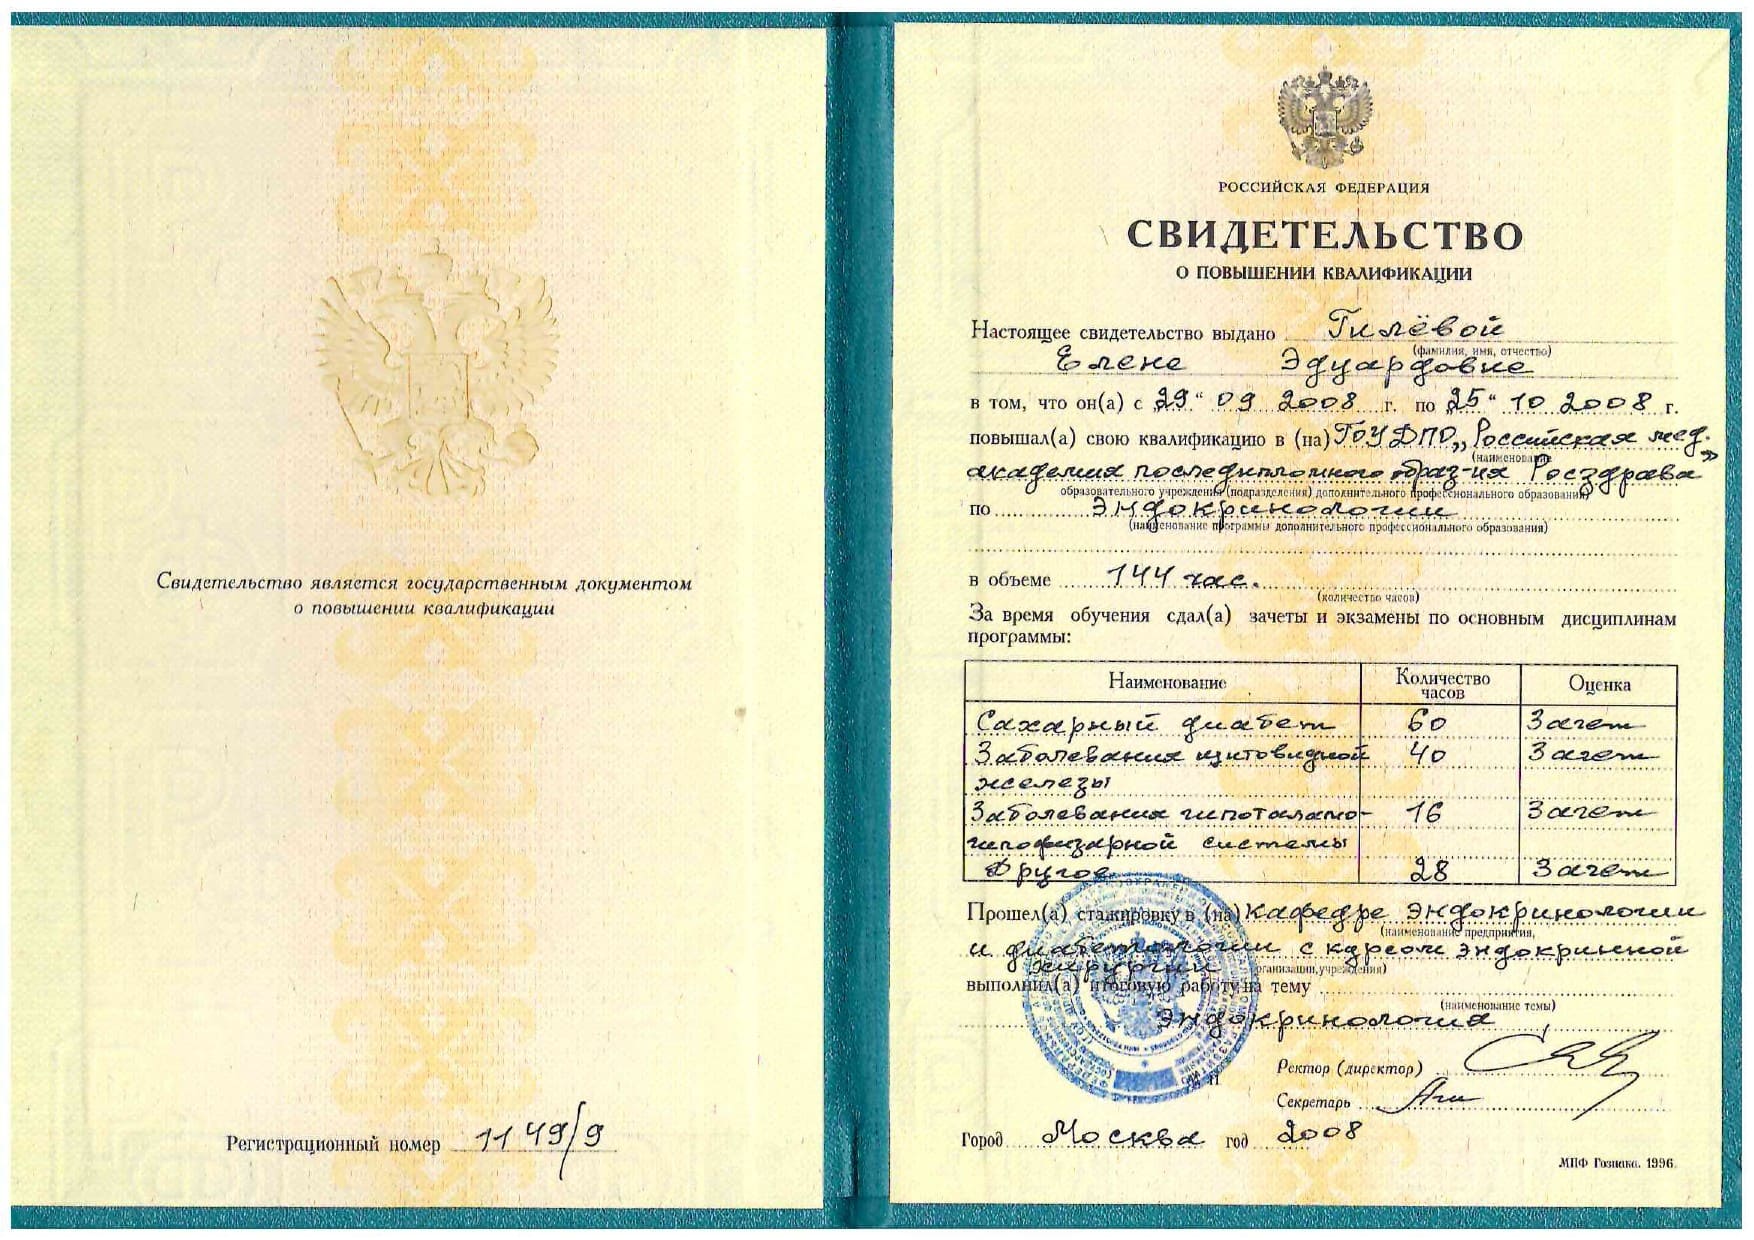 Свидетельство является государственным документом
о повышении квалификации
Регистрационный номер 1149/9
РОССИЙСКАЯ ФЕДЕРАЦИЯ
СВИДЕТЕЛЬСТВО
О ПОВЫШЕНИИ КВАЛИФИКАЦИИ
Настоящее свидетельство выдано Гилёвой
(фамилия, имя, отчество)
Елене Эдуардовне
в том, что он(а) с „29“ 09 2008 г. по „25“ 10 2008 г.
повышал(а) свою квалификацию в (на) ГОУ ДПО „Российская мед.
(наименование
академия последипломного образ-ия Росздрава"
образовательного учреждения (подразделения) дополнительного профессионального образования)
по Эндокринологии
(наименование программы дополнительного профессионального образования)
в объеме 144 час.
(количество часов)
За время обучения сдал(а) зачеты и экзамены по основным дисциплинам
программы:
Наименование Количество часов Оценка
Сахарный диабет 60 Зачет
Заболевания щитовидной 40 Зачет
железы
Заболевания гипоталамо- 16 Зачет
гипофизарной системы
Другое 28 Зачет
Прошел(а) стажировку в (на) Кафедре эндокринологии
(наименование предприятия,
и диабетологии с курсом эндокринной
хирургии организации, учреждения)
выполнил(а) итоговую работу на тему
(наименование темы)
Эндокринология
Ректор (директор)
Секретарь
Город Москва год 2008
МПФ Гознака. 1996.